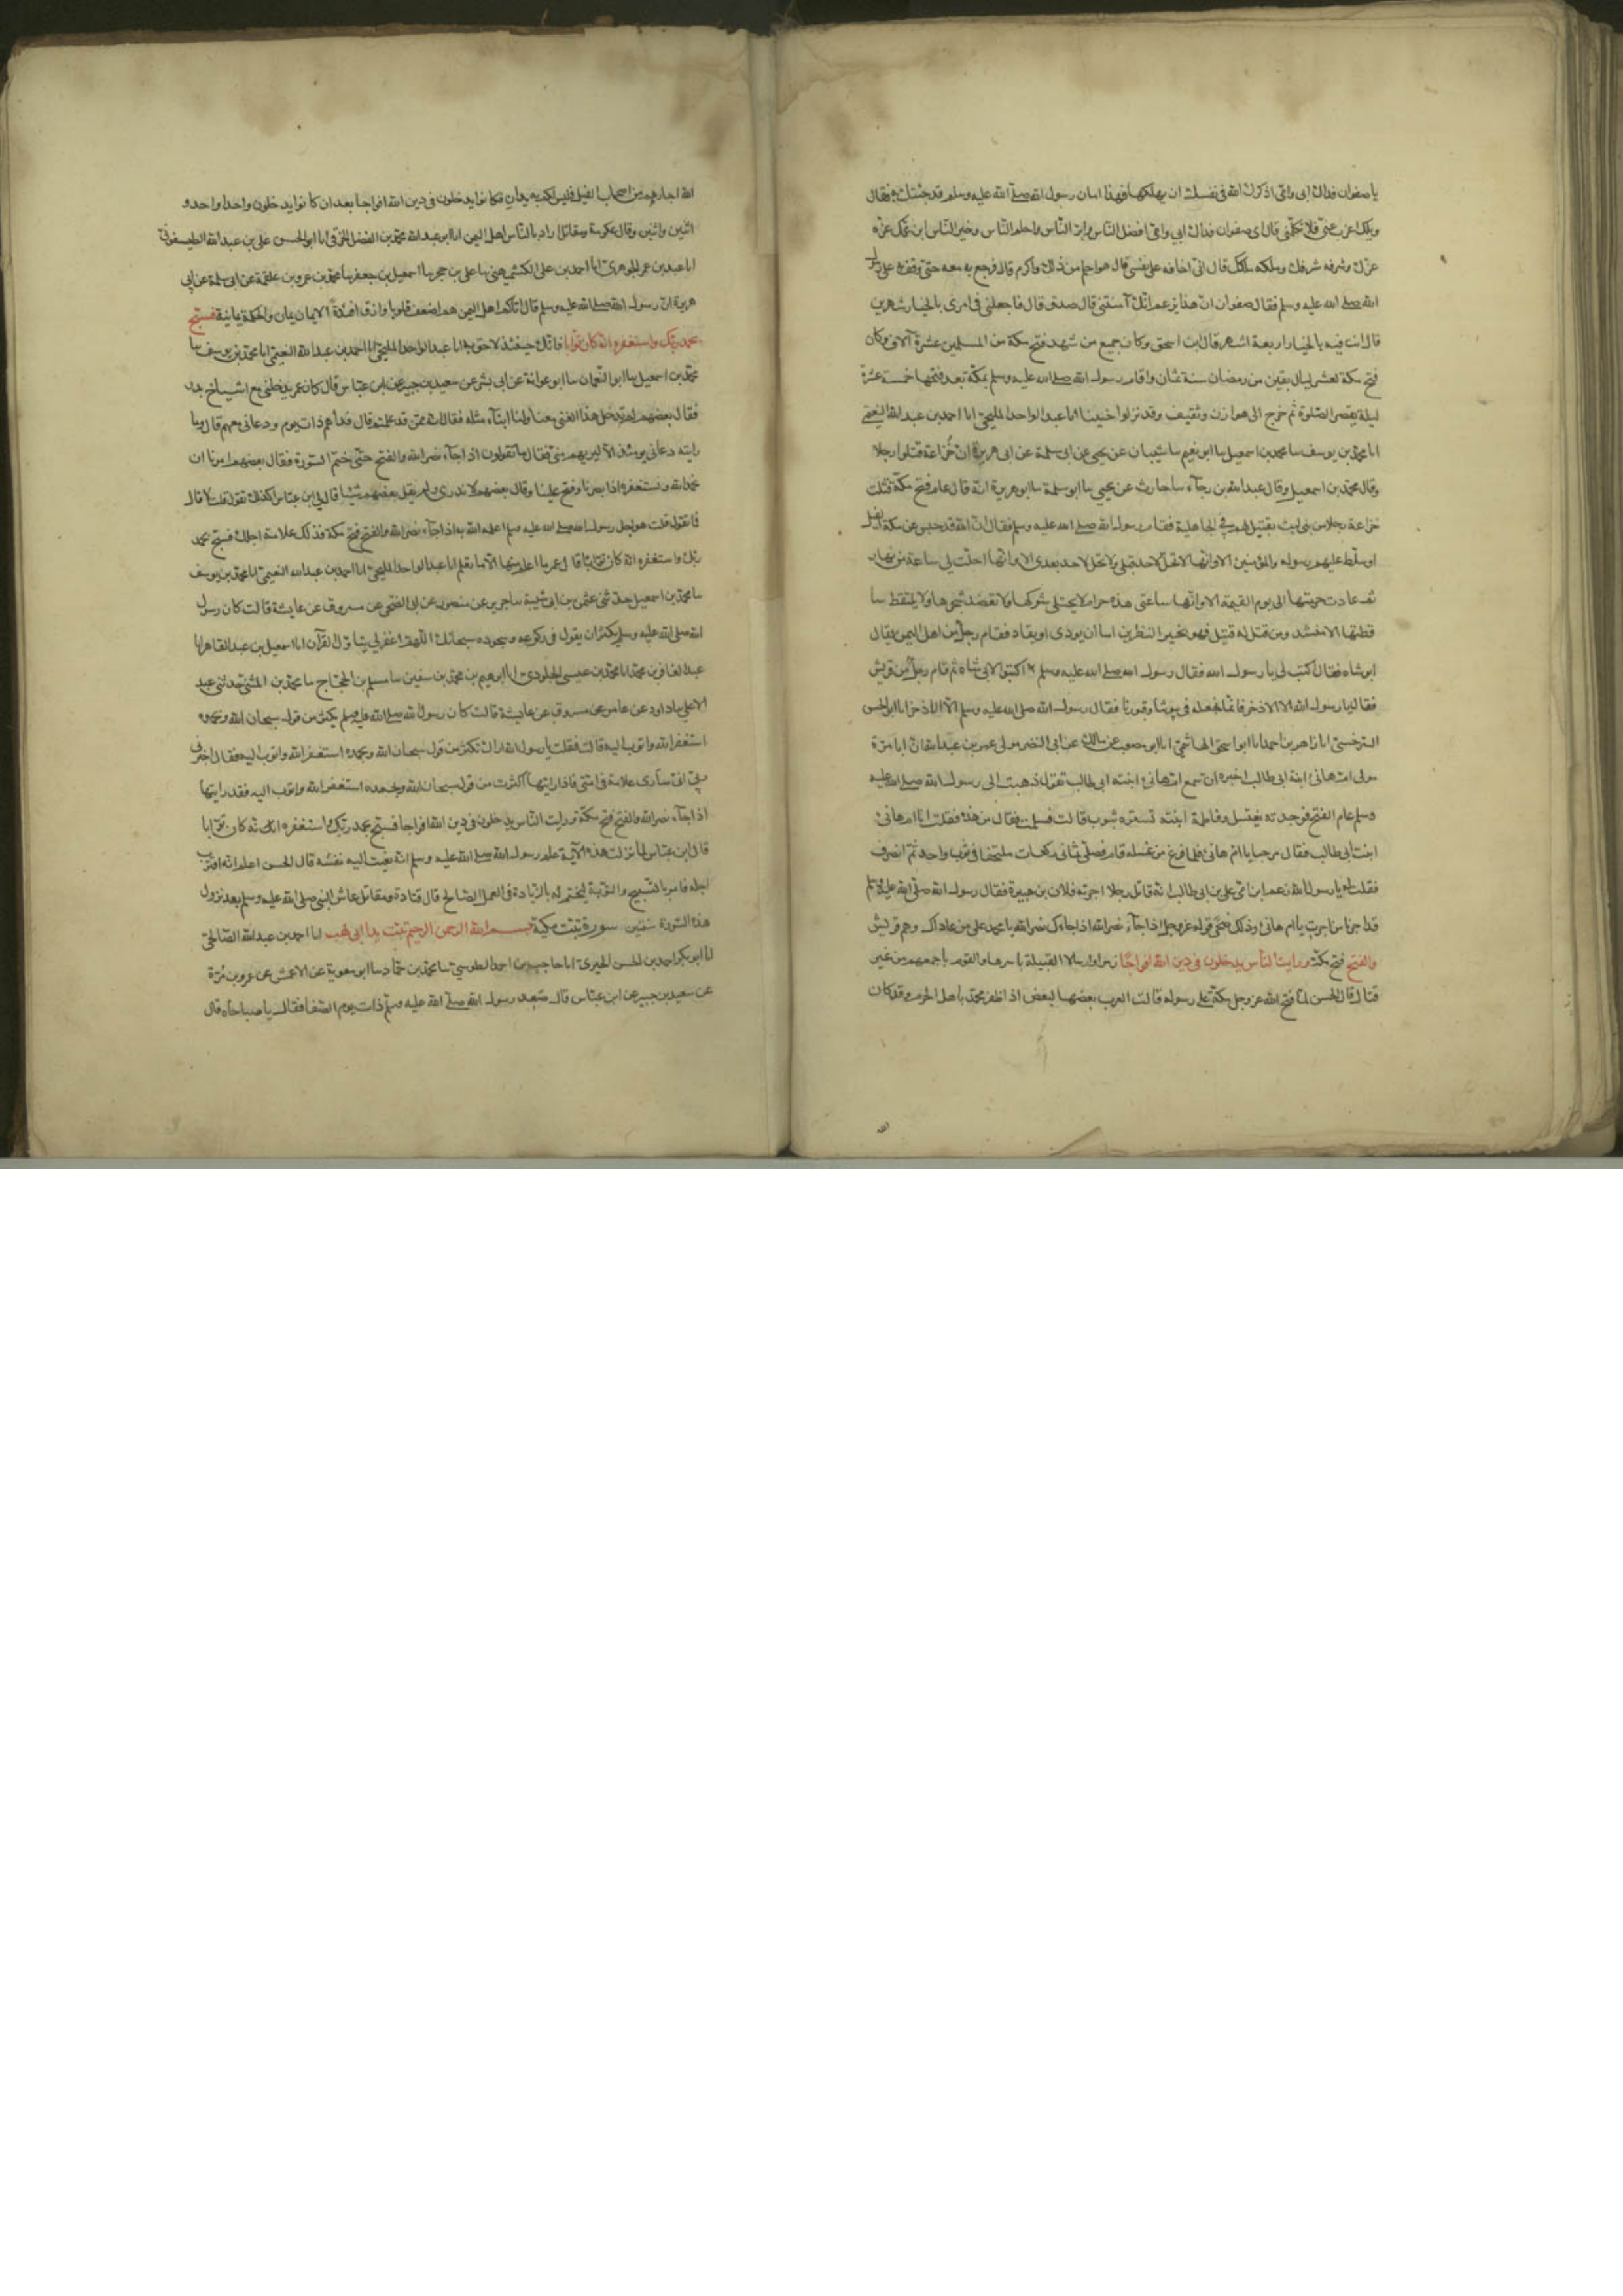 يا صفوان فداك ابى وامى اذكرك الله فى نفسك ان تهلكها فهذا امان رسول الله صلى الله عليه وسلم قد جئتك به فقال
ويلك اعزب عنى فلا تكلمنى قال اى صفوان فداك ابي وامى افضل الناس وابر الناس واحلم الناس وخير الناس ابن عمك عزه
عزك وشرفه شرفك وملكه ملكك قال انى اخافه على نفسى قال هو احلم من ذاك واكرم قال فرجع به معه حتى وقف به على رسول
الله صلى الله عليه وسلم فقال صفوان ان هذا يزعم انك آمنتنى قال صدق قال فاجعلنى فى امرى بالخيار شهرين
قال انت فيه بالخيار اربعة اشهر قال ابن اسحق وكان جميع من شهد فتح مكة من المسلمين عشرة آلاف وكان
فتح مكة لعشر ليال بقين من رمضان سنة ثمان واقام رسول الله صلى الله عليه وسلم بمكة بعد فتحها خمسة عشرة
ليلة يقصر الصلوة ثم خرج الى هوازن وثقيف وقد نزلوا حنينا انا عبد الواحد المليحى انا احمد بن عبد الله النعيمى
انا محمد بن يوسف سا محمد بن اسمعيل سا ابو نعيم سا شيبان عن يحيى عن ابى سلمة عن ابى هريرة ان خزاعة قتلوا رجلا
وقال محمد بن اسمعيل وقال عبد الله بن رجآء سا حارث عن يحيى سا ابو سلمة سا ابو هريرة انه قال عام فتح مكة قتلت
خزاعة رجلا من بنى ليث بقتيل لهم فى الجاهلية فقام رسول الله صلى الله عليه وسلم فقال ان الله قد حبس عن مكة الفيل
وسلط عليهم رسوله والمؤمنين الا وانها لا تحل لاحد قبلى ولا تحل لاحد بعدى الا وانها احلت لى ساعة من نهار
ثم عادت حرمتها الى يوم القيمة الا وانها ساعتى هذه حرام لا يختلى شوكها ولا تعضد شجرها ولا يلتقط سا
قطتها الا منشد ومن قتل له قتيل فهو بخير النظرين اما ان يودى او يقاد فقام رجل من اهل اليمن يقال
ابو شاه فقال اكتب لى يا رسول الله فقال رسول الله صلى الله عليه وسلم اكتبوا لابى شاه ثم قام رجل من قريش
فقال يا رسول الله الا الاذخر فانما نجعله فى بيوتنا وقبورنا فقال رسول الله صلى الله عليه وسلم الا الاذخر انا ابو الحسن
السرخسى انا زاهر بن احمد انا ابو اسحق الهاشمى انا ابو مصعب عن مالك عن ابى النضر مولى عمر بن عبد الله ان ابا مرة
مولى ام هانئ ابنة ابى طالب اخبره انه سمع ام هانئ ابنه ابى طالب تقول ذهبت الى رسول الله صلى الله عليه
وسلم عام الفتح فوجدته يغتسل وفاطمة ابنته تستره بثوب قالت فسلمت فقال من هذه فقلت انا ام هانئ
ابنت ابى طالب فقال مرحبا يا ام هانئ فلما فرغ من غسله قام فصلى ثمانى ركعات ملتحفا فى ثوب واحد ثم انصرف
فقلت له يا رسول الله زعم ابن امى على بن ابى طالب انه قاتل رجلا اجرته فلان بن هبيرة فقال رسول الله صلى الله عليه وسلم
قد اجرنا من اجرت يا ام هانئ وذلك ضحى قوله عز وجل اذا جآء نصر الله اذا جاءك نصر الله يا محمد على من عاداك وهم قريش
والفتح فتح مكة ورايت الناس يدخلون فى دين الله افواجا زمرا وارسالا القبيلة باسرها والقوم باجمعهم من غير
قتال قال الحسن لما فتح الله عز وجل مكة على رسوله قالت العرب بعضها لبعض اذا ظفر محمد باهل الحرم وقد كان
الله
الله اجارهم من اصحاب الفيل فليس لكم به يدان فكانوا يدخلون فى دين الله افواجا بعد ان كانوا يدخلون واحدا واحدو
اثنين واثنين وقال عكرمة ومقاتل اراد بالناس اهل اليمن انا ابو عبد الله محمد بن الفضل الخرقى انا ابو الحسن على بن عبد الله الطيسفونى
انا عبد بن عمر الجوهرى انا احمد بن على الكشميهنى سا على بن حجر سا اسمعيل بن جعفر سا محمد بن عمرو بن علقمة عن ابى سلمة عن ابى
هريرة ان رسول الله صلى الله عليه وسلم قال اتاكم اهل اليمن هم اضعف قلوبا وارق افئدة الايمان يمان والحكمة يمانية فسبح
بحمد ربك واستغفره انه كان توابا فانك حينئذ لاحق به انا عبد الواحد المليحى انا احمد بن عبد الله النعيمى انا محمد بن يوسف سا
محمد بن اسمعيل سا ابو النعمان سا ابو عوانة عن ابى بشر عن سعيد بن جبير عن ابن عباس قال كان عمر يدخلنى مع اشياخ بدر
فقال بعضهم لم تدخل هذا الفتى معنا ولنا ابنآء مثله فقال انه ممن قد علمتم قال فدعاهم ذات يوم ودعانى معهم قال وما
رايته دعانى يومئذ الا ليريهم منى فقال ما تقولون اذا جآء نصر الله والفتح حتى ختم السورة فقال بعضهم امرنا ان
نحمد الله ونستغفره اذا نصرنا وفتح علينا وقال بعضهم لا ندرى ولم يقل بعضهم شيئا قال لى ابن عباس اكذلك تقول قلت لا قال
فما تقول قلت هو اجل رسول الله صلى الله عليه وسلم اعلمه الله به اذا جآء نصر الله والفتح فتح مكة فذلك علامة اجلك فسبح بحمد
ربك واستغفره انه كان توابا قال عمر ما اعلم منها الا ما تعلم انا عبد الواحد المليحى انا احمد بن عبد الله النعيمى انا محمد بن يوسف
سا محمد بن اسمعيل حدثنى عثمن بن ابى شيبة سا جرير عن منصور عن ابى الضحى عن مسروق عن عايشة قالت كان رسول
الله صلى الله عليه وسلم يكثر ان يقول فى ركوعه وسجوده سبحانك اللهم اغفر لى يتاول القرآن انا اسمعيل بن عبد القاهر انا
عبد الغافر بن محمد انا محمد بن عيسى الجلودى انا ابراهيم بن محمد بن سفين سا مسلم بن الحجاج سا محمد بن المثنى حدثنى عبد
الاعلى سا داود عن عامر عن مسروق عن عايشة قالت كان رسول الله صلى الله عليه وسلم يكثر من قول سبحان الله وبحمده
استغفر الله واتوب اليه قالت فقلت يا رسول الله اراك تكثر من قول سبحان الله وبحمده استغفر الله واتوب اليه فقال اخبرنى
ربى انى سارى علامة فى امتى فاذا رايتها اكثرت من قول سبحان الله وبحمده استغفر الله واتوب اليه فقد رايتها
اذا جآء نصر الله والفتح فتح مكة ورايت الناس يدخلون فى دين الله افواجا فسبح بحمد ربك واستغفره انه كان توابا
قال ابن عباس لما نزلت هذه الآية علم رسول الله صلى الله عليه وسلم انه نعيت اليه نفسه قال الحسن اعلم انه اقترب
اجله فامر بالتسبيح والتوبة ليختم له بالزيادة فى العمل الصالح قال قتادة ومقاتل عاش النبى صلى الله عليه وسلم بعد نزول
هذه السورة سنتين سورة تبت مكية بسم الله الرحمن الرحيم تبت يدا ابى لهب انا احمد بن عبد الله الصالحى
انا ابو بكر احمد بن الحسن الحيرى انا حاجب بن احمد الطوسى سا محمد بن حماد سا ابو معوية عن الاعمش عن عمرو بن مرة
عن سعيد بن جبير عن ابن عباس قال صعد رسول الله صلى الله عليه وسلم ذات يوم الصفا فقال يا صباحاه قال